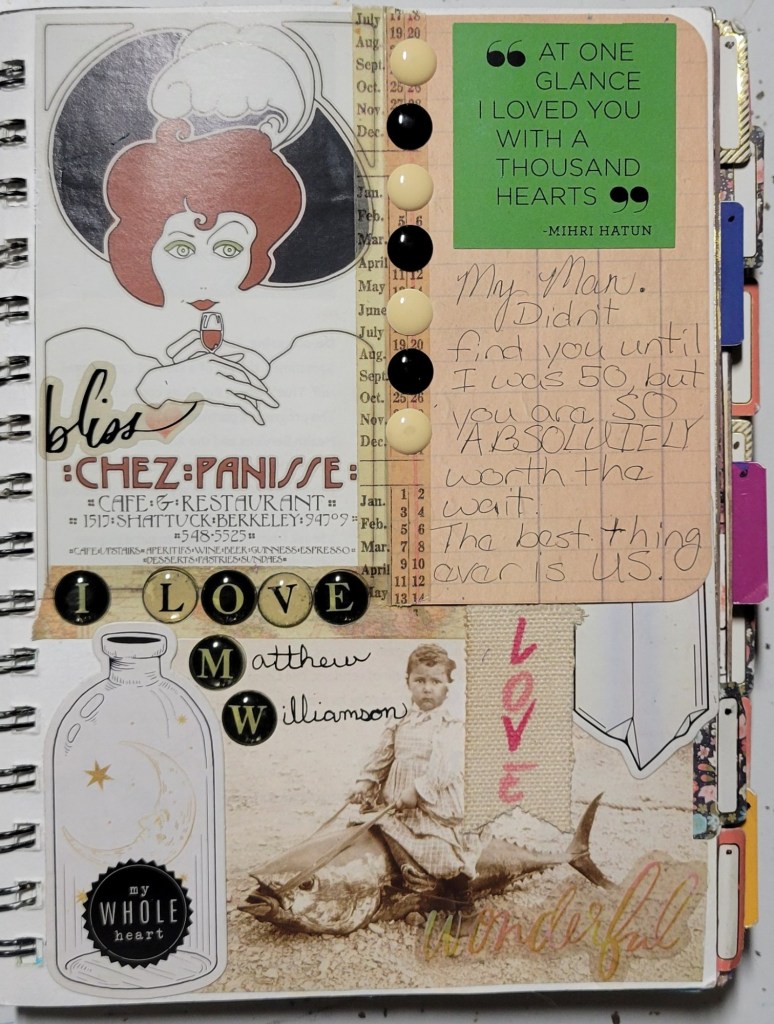 bliss
:CHEZ:PANISSE:
CAFE & RESTAURANT
1517 SHATTUCK BERKELEY 94709
548-5525
CAFE UPSTAIRS APERITIFS WINE BEER GUINNESS ESPRESSO
DESSERTS PASTRIES SUNDAES
July 17 18
Aug. 19 20
Sept.
Oct. 25 26
Nov.
Dec.
Jan.
Feb. 5 6
Mar.
April 11 12
May
June
July 19 20
Aug.
Sept
Oct. 25 26
Nov.
Dec.
Jan. 1 2
3 4
Feb. 5 6
Mar. 7 8
April 9 10
11 12
May 13 14
“ AT ONE
GLANCE
I LOVED YOU
WITH A
THOUSAND
HEARTS ”
-MIHRI HATUN
My Man.
Didn't
find you until
I was 50, but
you are SO
ABSOLUTELY
worth the
wait.
The best thing
ever is US.
I LOVE
Matthew
Williamson
LOVE
my
WHOLE
heart
wonderful